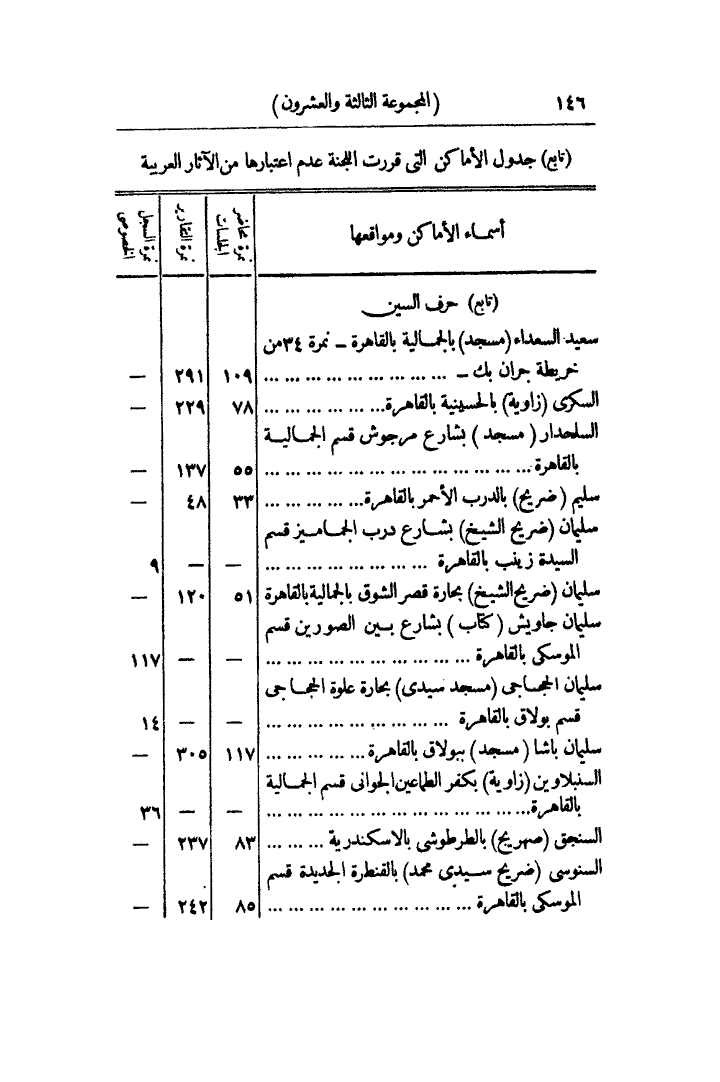 ١٤٦ (المجموعة الثالثة والعشرون)
(تابع) جدول الأماكن التى قررت اللجنة عدم اعتبارها من الآثار العربية
أسماء الأماكن ومواقعها | نمرة محاضر الجلسات | نمرة التقارير | نمرة السجل الخصوصى
(تابع) حرف السين
سعيد السعداء (مسجد) بالجمالية بالقاهرة – نمرة ٣٤ من
خريطة جران بك – ... ... ... ... ... ... ... ... ... ١٠٩ ٢٩١ —
السكرى (زاوية) بالحسينية بالقاهرة... ... ... ... ... ... ٧٨ ٢٢٩ —
السلحدار (مسجد) بشارع مرجوش قسم الجمالية
بالقاهرة ... ... ... ... ... ... ... ... ... ... ... ... ... ٥٥ ١٣٧ —
سليم (ضريح) بالدرب الأحمر بالقاهرة... ... ... ... ... ٣٣ ٤٨ —
سليمان (ضريح الشيخ) بشارع درب الجماميز قسم
السيدة زينب بالقاهرة ... ... ... ... ... ... ... ... — — ٩
سليمان (ضريح الشيخ) بحارة قصر الشوق بالجمالية بالقاهرة ٥١ ١٢٠ —
سليمان جاويش (كتاب) بشارع بين الصورين قسم
الموسكى بالقاهرة ... ... ... ... ... ... ... ... ... ... — — ١١٧
سليمان الحجاجى (مسجد سيدى) بحارة علوة الحجاجى
قسم بولاق بالقاهرة ... ... ... ... ... ... ... ... ... — — ١٤
سليمان باشا (مسجد) ببولاق بالقاهرة... ... ... ... ... ١١٧ ٣٠٥ —
السنبلاوين (زاوية) بكفر الطماعين الجوانى قسم الجمالية
بالقاهرة... ... ... ... ... ... ... ... ... ... ... ... ... — — ٣٦
السنجق (صهريج) بالطرطوشى بالاسكندرية ... ... ... ٨٣ ٢٣٧ —
السنوسى (ضريح سيدى محمد) بالقنطرة الجديدة قسم
الموسكى بالقاهرة ... ... ... ... ... ... ... ... ... ... ٨٥ ٢٤٢ —